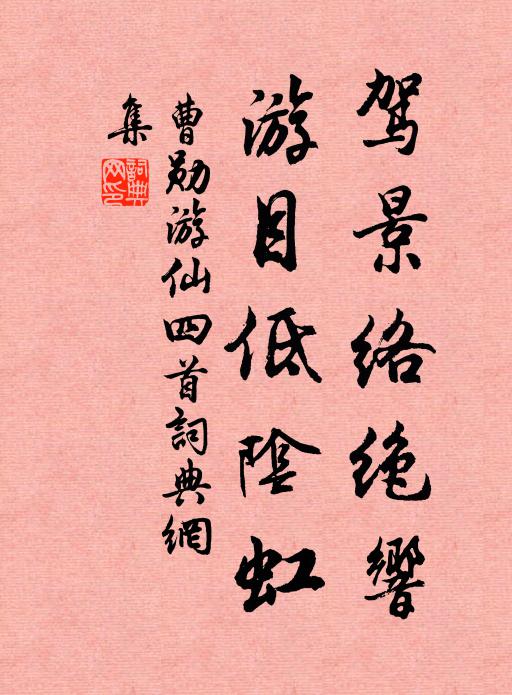 驾景络绝響
游目低陰虹
曹勋游仙四首詞典網
集
詞典
网印